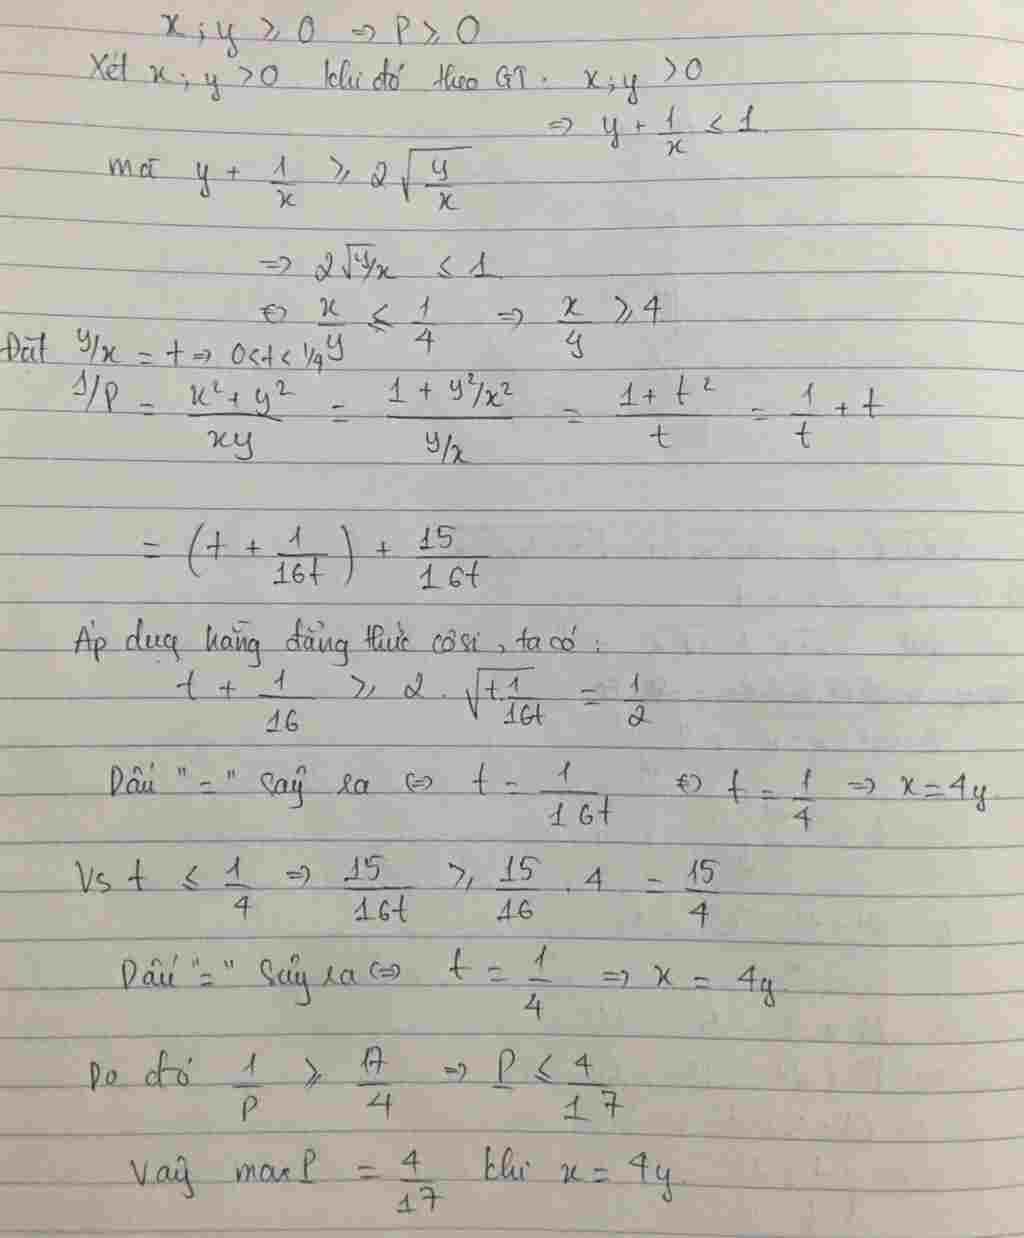 x; y ⩾ 0 => P ⩾ 0
Xét x; y > 0 khi đó theo GT: x; y > 0
=> y + 1/x ≤ 1
mà y + 1/x ⩾ 2√(y/x)
=> 2√(y/x) ≤ 1
<=> x/y ≤ 1/4 => x/y ⩾ 4
Đặt y/x = t => 0 < t < 1/4
1/P = (x² + y²)/(xy) = (1 + y²/x²)/(y/x) = (1 + t²)/t = 1/t + t
= (t + 1/16t) + 15/16t
Áp dug hằng đẳng thức côsi, ta có:
t + 1/16 ⩾ 2 . √(t.1/16t) = 1/2
Dấu "=" sảy ra <=> t = 1/16t <=> t = 1/4 => x = 4y
Vs t ≤ 1/4 => 15/16t ⩾ 15/16 . 4 = 15/4
Dấu "=" sảy ra <=> t = 1/4 => x = 4y
Do đó 1/P ⩾ 17/4 => P ≤ 4/17
Vậy max P = 4/17 khi x = 4y